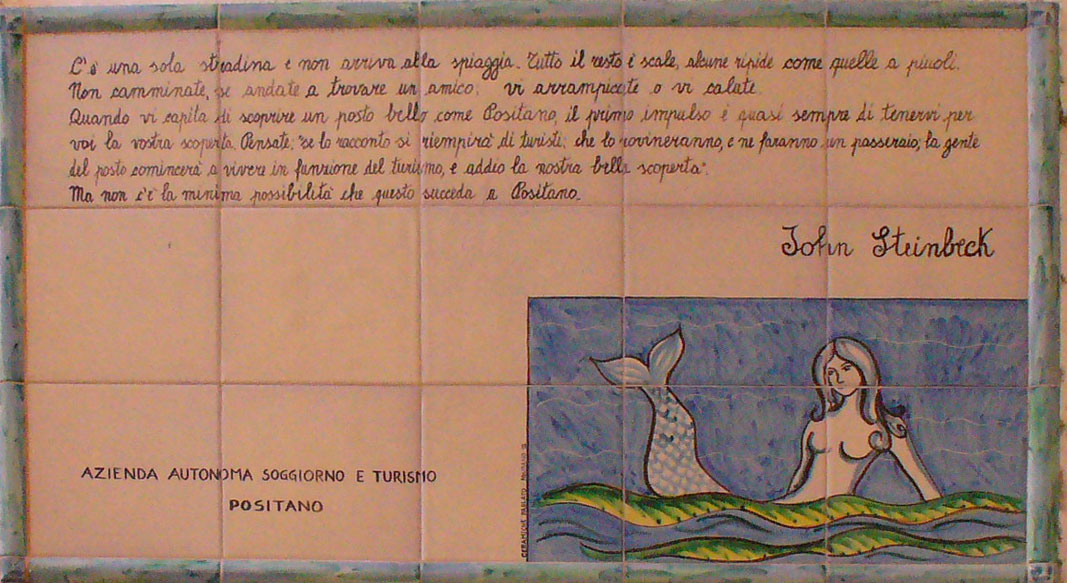 C'è una sola stradina e non arriva alla spiaggia. Tutto il resto è scale, alcune ripide come quelle a piuoli.
Non camminate, se andate a trovare un amico; vi arrampicate o vi calate.
Quando vi capita di scoprire un posto bello come Positano, il primo impulso è quasi sempre di tenervi per
voi la vostra scoperta. Pensate; "se lo racconto si riempirà di turisti; che lo rovineranno, e ne faranno un passeraio; la gente
del posto comincerà a vivere in funzione del turismo, e addio la nostra bella scoperta".
Ma non c'è la minima possibilità che questo succeda a Positano.
John Steinbeck
AZIENDA AUTONOMA SOGGIORNO E TURISMO
POSITANO
CERAMICHE PARLATO POSITANO